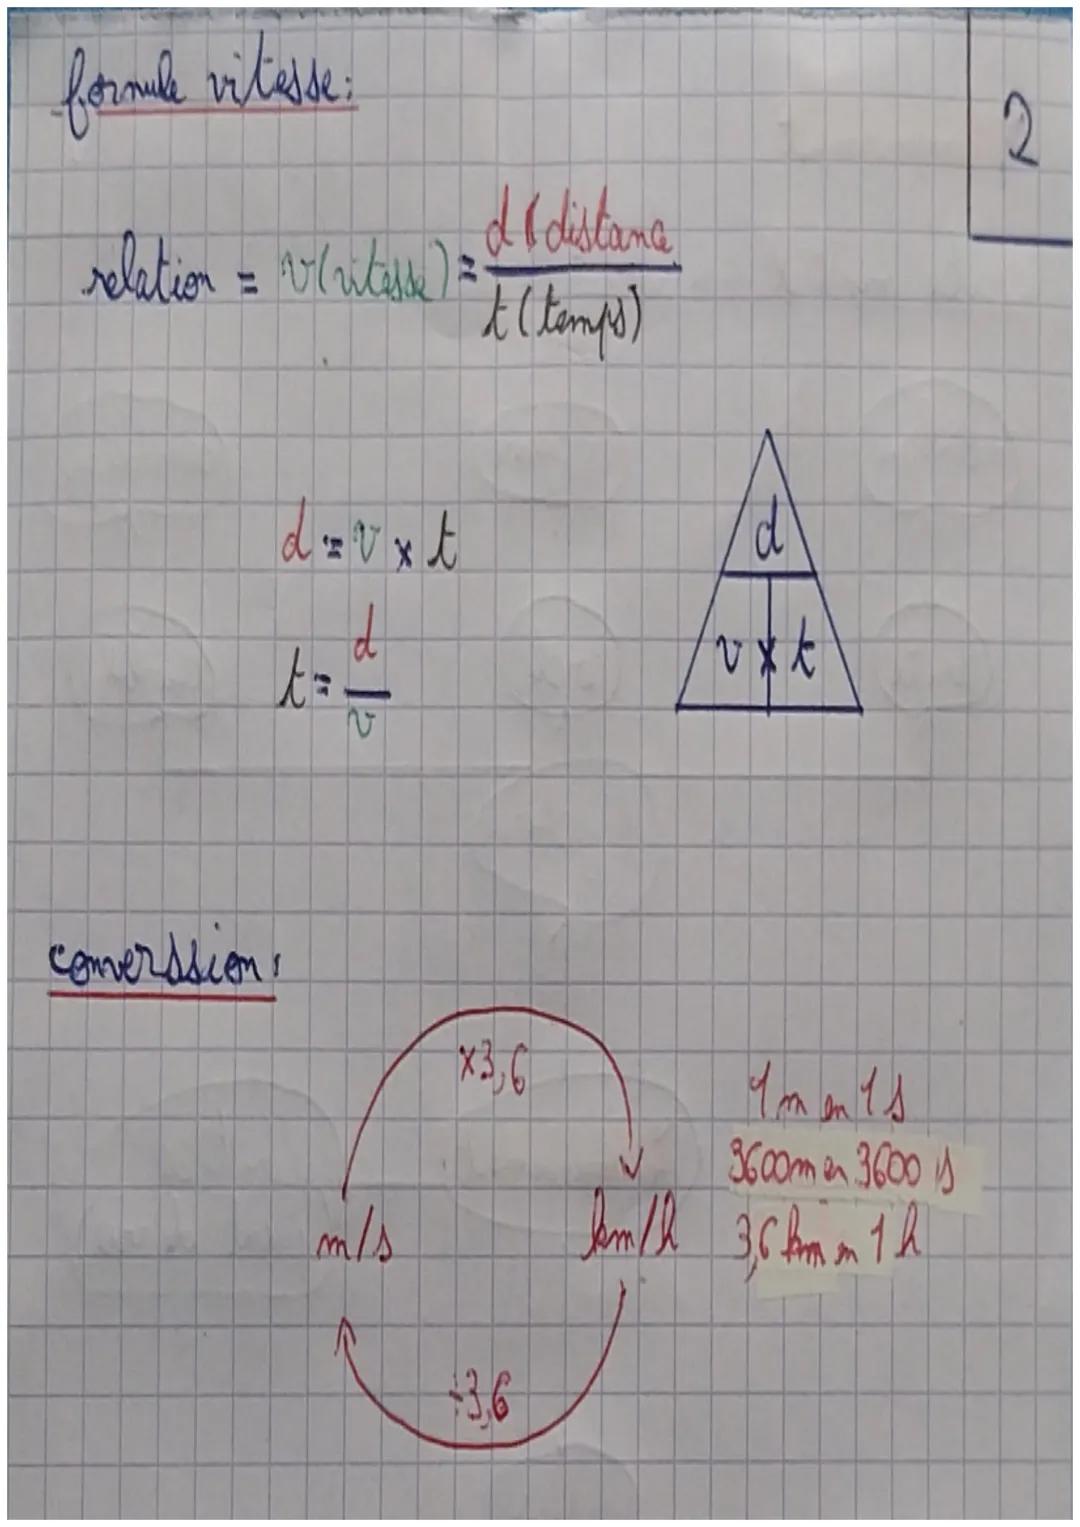 formule vitesse:
2
relation = v(vitesse) = d(distance / t(temps)
d = v x t
t = d / v
d
v x t
converssion:
x3,6
1 m en 1 s
3600m en 3600 s
m/s km/h 3,6 km en 1 h
÷3,6